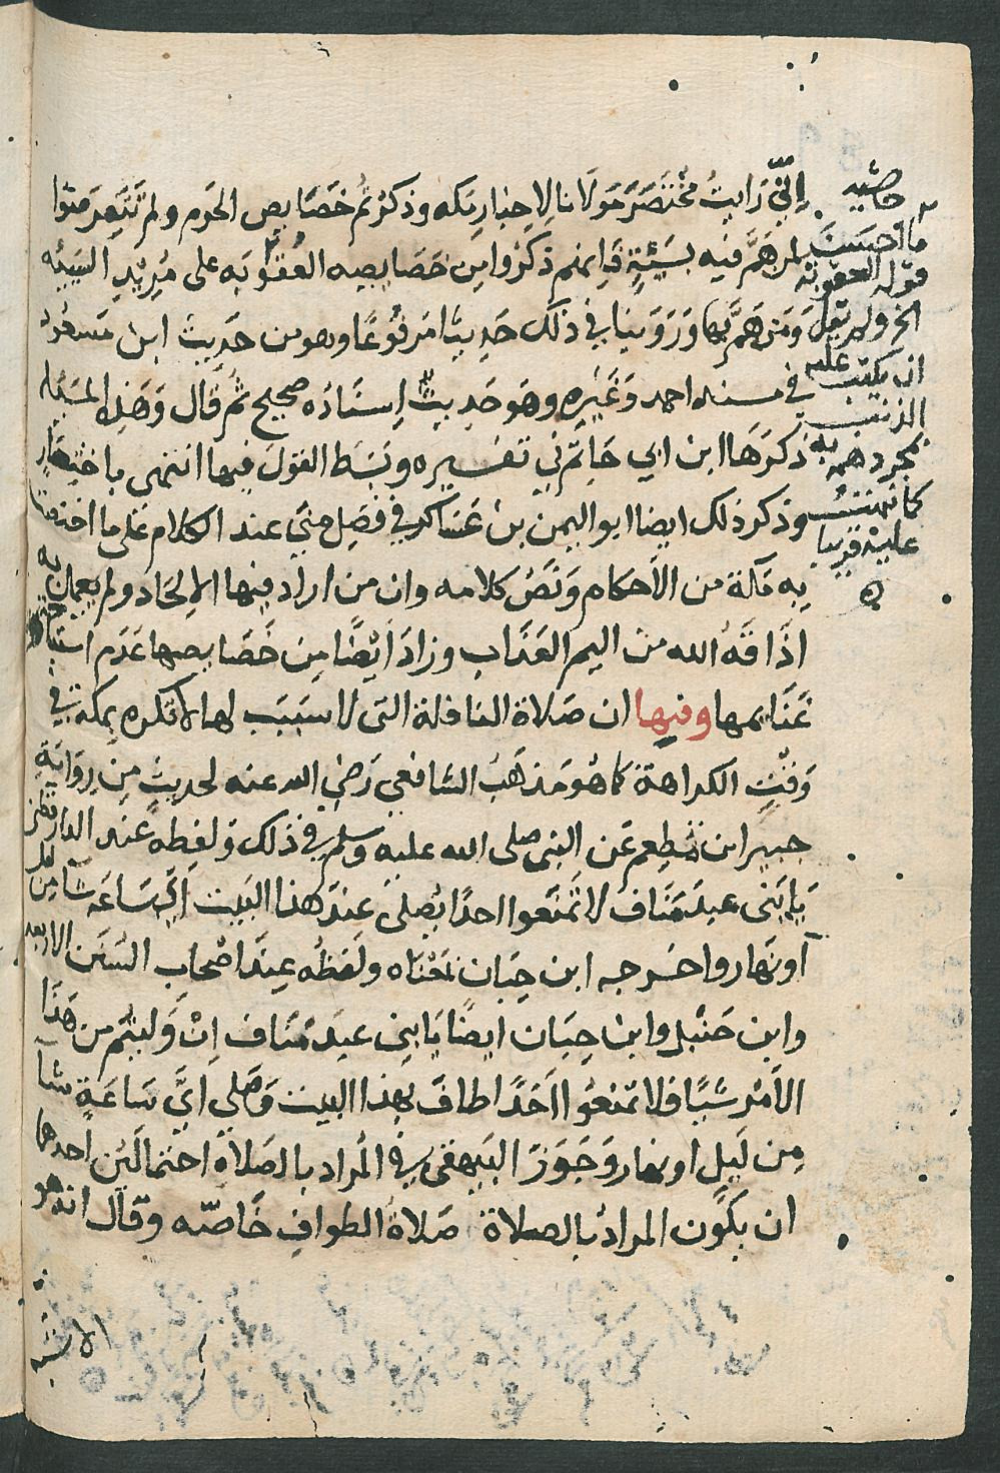 إنّي رَايتُ مُخْتَصَرَ مَولَانا لِاخبارِ مَكه وذكرتُم خَصَايص الحَرم ولم تَتَعرضوا
لمن هَمَّ فيه بسَيّئةٍ فَانهم ذكرُوا مِن خصَايصِه العُقُوبَه على مُرِيْدِ السَيئَه
وَمَن هَمَّ بها وَرَوَينا في ذلكَ حَدِيثًا مَرفُوعًا وهو من حَدِيث ابن مَسعُود
في مسند احمد وَغَيْرِه وهو حَدِيثٌ إسنَادُه صحيح ثم قال وَهَذِه المسَئَله
ذكرَهَا ابن ابي حَاتِم في تفسيره وبَسَط القولَ فيها انتهى باختِصَار
وذكر ذلك ايضا ابو اليمن بن عَساكر في فضِل مِنًى عند الكلام على ما اختصت
به مَكة من الأحكام وَنَصُ كلامه وان من اراد فيها الإلحَاد ولم يعمل به
اذَاقَهُ الله من اليم العَذَاب وزادَ ايْضًا مِن خَصَايصها عَدَم استباحة
غَنَايمها وفيها ان صَلاة النافلة التى لا سَبَبَ لها لا تكره بمكة في
وَقْتِ الكراهة كما هُو مَذهَبُ الشافعي رَضي الله عنه لحديثٍ مِن رِوَايَةِ
جبير ابن مُطعِم عَن النبى صلى الله عليه وسلم في ذلك ولفظه عند الدارقطنى
يَا بَنى عبد مَنَاف لا تَمنَعوا احدًا يُصلى عِندَ هذا البيت اَيَّ سَاعَه شَآ مِن ليل
او نهار واخرجه ابن حِبَان بمَعْنَاه ولَفظُه عِندَ اصْحَاب السُنَن الاربعه
وابن حَنبَلٍ وابن حِبَان ايضًا يَا بنِي عبدَ مَناف اِنْ وَليتُم من هَذَا
الأمْرِ شيًا فلا تمنعُوا احَدًا طافَ بهذا البيت وَصَلى ايَّ سَاعَةٍ شآ
مِن لَيلٍ او نهار وَجَوَزَ البَيهقى في المُراد بالصَلاةِ احتمالَين احدهما
ان يكُون المرادُ بالصلاة صَلاة الطوافِ خَاصّه وقال انه هو
الاشبه
حاشيه
ما احسَنَ
قوله العقوبة
الخ ولم يقل
ان يكتب عليه
الذنب
بمجرد همه به
كما نبهتُ
عليه قريبا